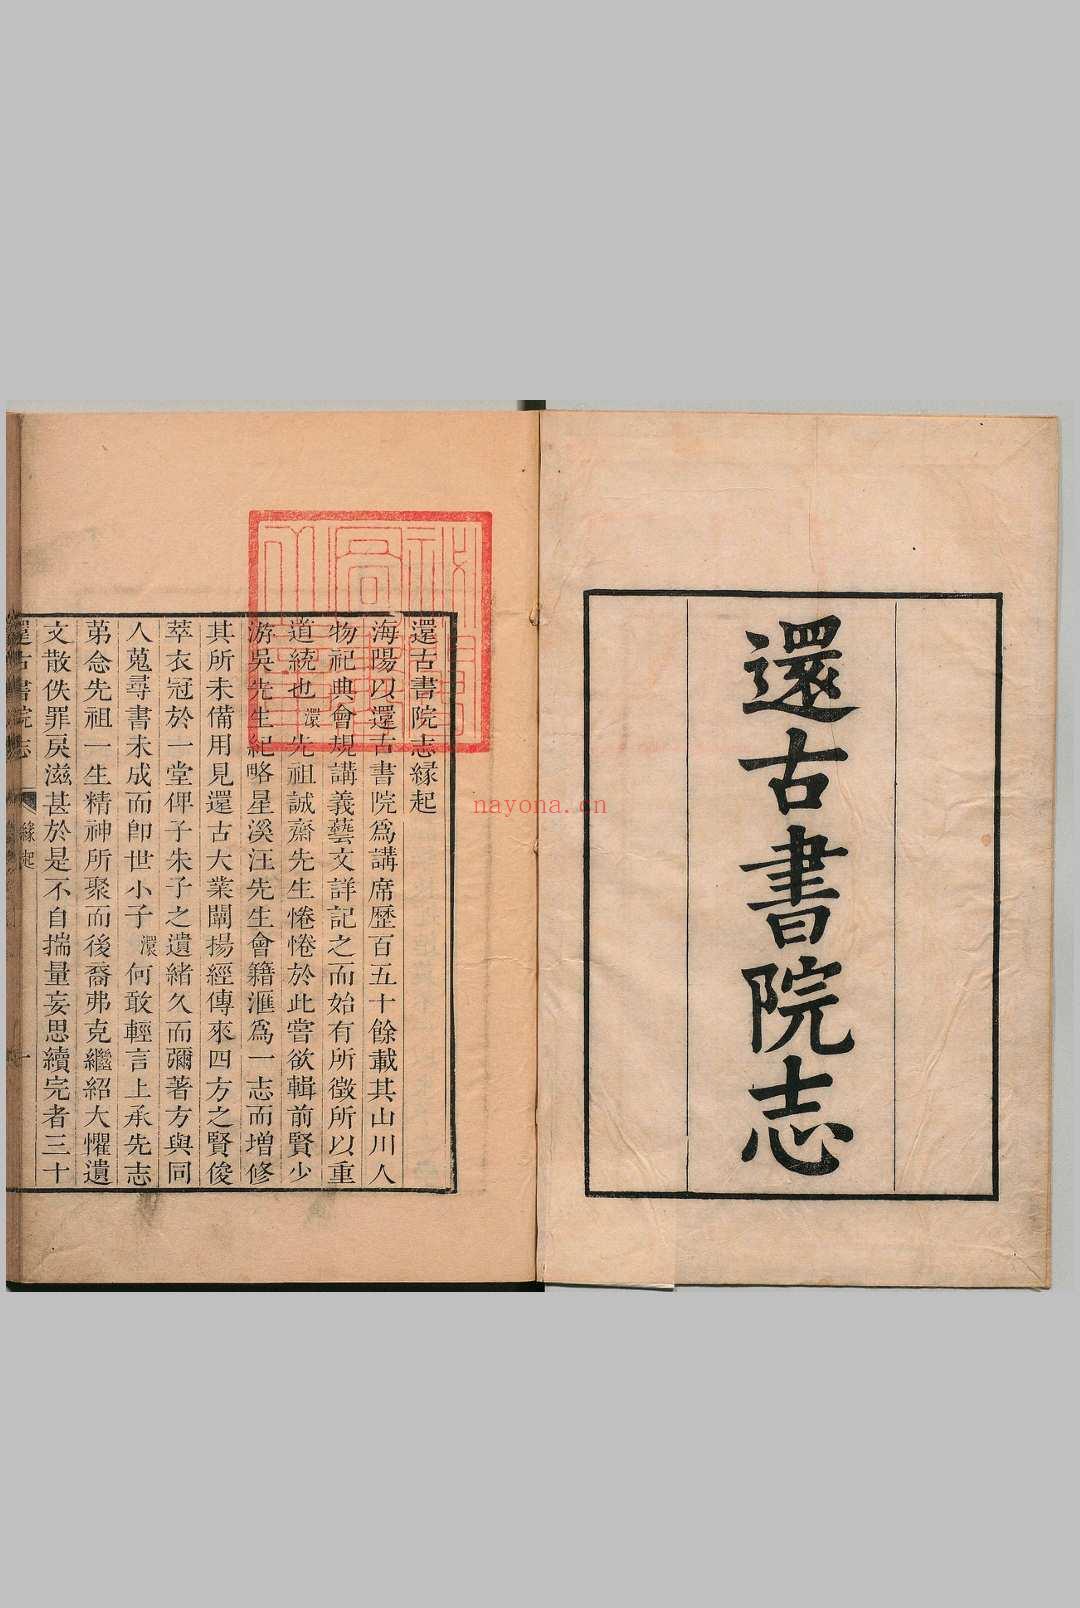 還古書院志
還古書院志緣起
海陽以還古書院爲講席歷百五十餘載其山川人
物祀典會規講義藝文詳記之而始有所徵所以重
道統也還先祖誠齋先生惓惓於此嘗欲輯前賢少
游吳先生紀略星溪汪先生會籍滙爲一志而增修
其所未備用見還古大業闡揚經傳來四方之賢俊
萃衣冠於一堂俾子朱子之遺緒久而彌著方與同
人蒐尋書未成而卽世小子還何敢輕言上承先志
苐念先祖一生精神所聚而後裔弗克繼紹大懼遺
文散佚罪戾滋甚於是不自揣量妄思續完者三十
還古書院志 緣起 一
nayona.cn